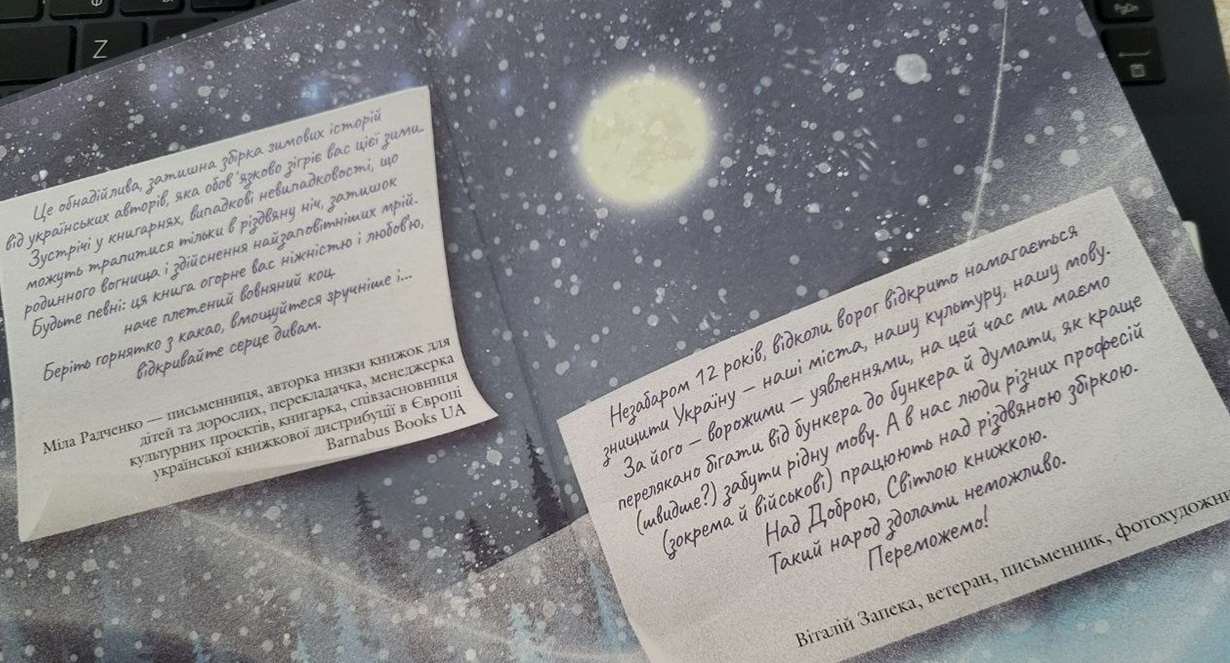 Це обнадійлива, затишна збірка зимових історій
від українських авторів, яка обов'язково зігріє вас цієї зими.
Зустрічі у книгарнях, випадкові невипадковості, що
можуть трапитися тільки в різдвяну ніч, затишок
родинного вогнища і здійснення найзаповітніших мрій.
Будьте певні: ця книга огорне вас ніжністю і любов'ю,
наче плетений вовняний коц.
Беріть горнятко з какао, вмощуйтеся зручніше і...
відкривайте серце дивам.
Міла Радченко — письменниця, авторка низки книжок для
дітей та дорослих, перекладачка, менеджерка
культурних проєктів, книгарка, співзасновниця
української книжкової дистрибуції в Європі
Barnabus Books UA
Незабаром 12 років, відколи ворог відкрито намагається
знищити Україну — наші міста, нашу культуру, нашу мову.
За його — ворожими — уявленнями, на цей час ми маємо
перелякано бігати від бункера до бункера й думати, як краще
(швидше?) забути рідну мову. А в нас люди різних професій
(зокрема й військові) працюють над різдвяною збіркою.
Над Доброю, Світлою книжкою.
Такий народ здолати неможливо.
Переможемо!
Віталій Запека, ветеран, письменник, фотохудожн
Z
PgDn